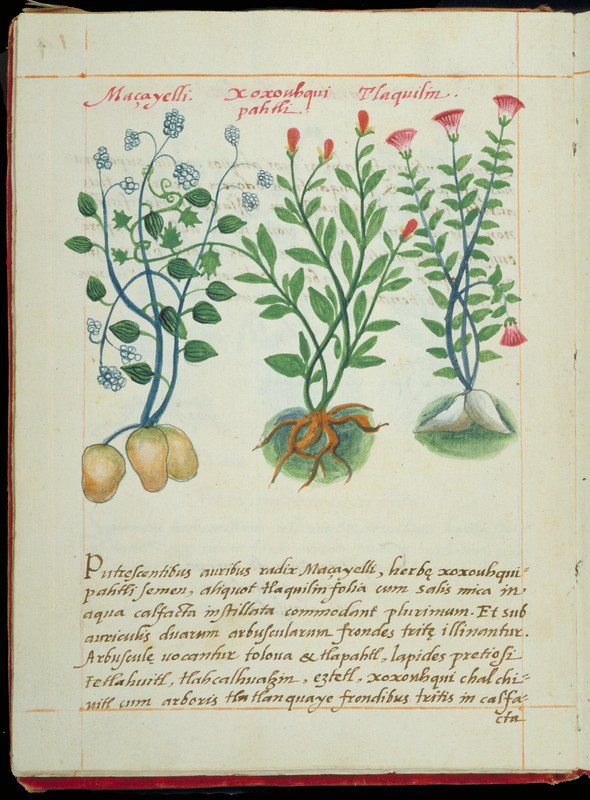 Maçayelli. xoxouhqui Tlaquilin.
pahtli.
Putrescentibus auribus radix Maçayelli, herbę xoxouhqui-
pahtli semen, aliquot tlaquilin folia cum salis mica in
aqua calfacta instillata commodant plurimum. Et sub
auriculis duarum arbuscularum frondes tritę illinantur.
Arbusculę uocantur tolova & tlapahtl, lapides pretiosi
tetlahuitl, tlahcalhuatzin, eztetl, xoxouhqui chalchi-
uitl cum arboris tlatlanquaye frondibus tritis in calfa-
cta